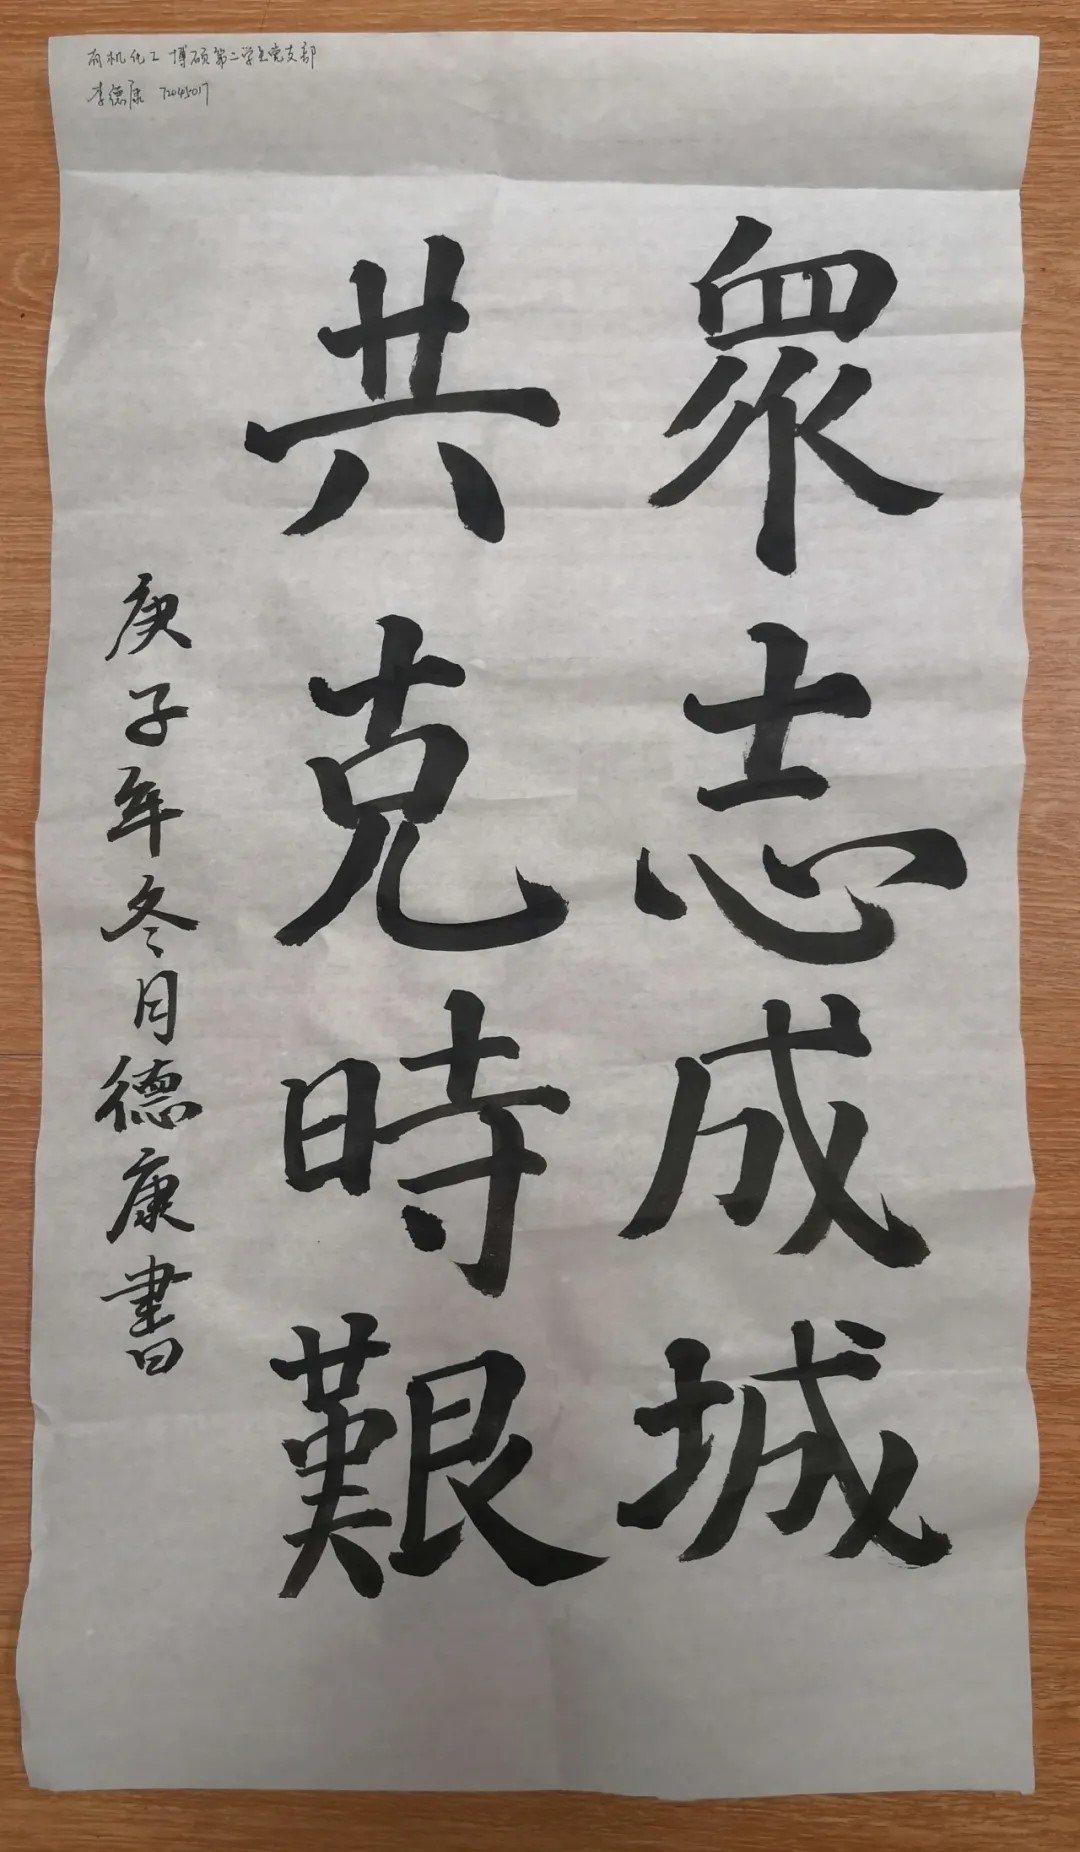 有机化工博硕第二学生党支部
李德康 72045017
眾志成城
共克時艱
庚子年冬月德康書